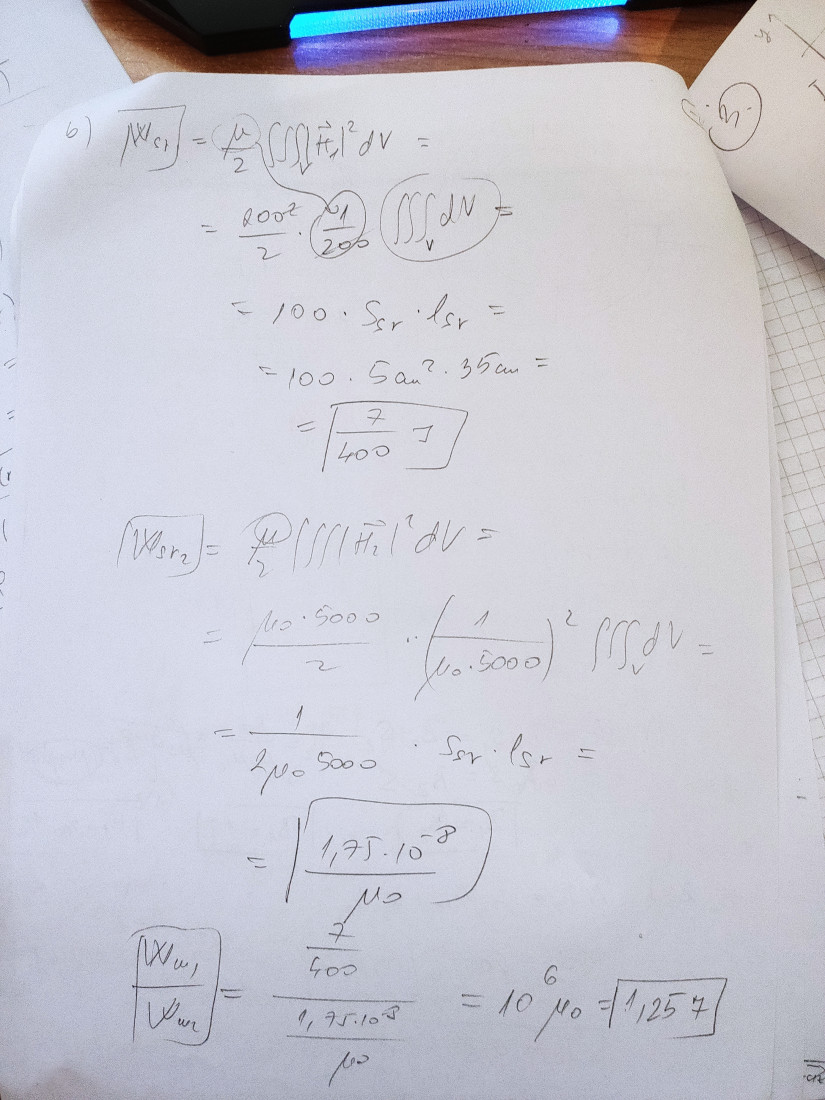 6) W_sr1 = μ/2 ∭_V |H⃗_1|² dV =
= 200²/2 · 1/200 ∭_V dV =
= 100 · S_sr · l_sr =
= 100 · 5cm² · 35cm =
= 7/400 J
W_sr2 = μ/2 ∭ |H⃗_2|² dV =
= μ_0·5000/2 · (1/(μ_0·5000))² ∭_V dV =
= 1/(2μ_0 5000) · S_sr · l_sr =
= 1,75·10^-8/μ_0
W_m1/W_m2 = (7/400)/(1,75·10^-8/μ_0) = 10^6 μ_0 = 1,257